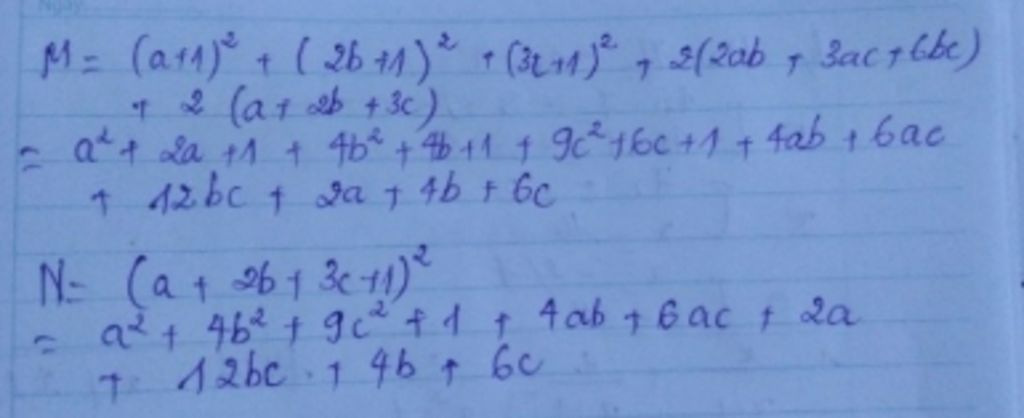 M = (a+1)² + (2b+1)² + (3c+1)² + 2(2ab + 3ac + 6bc)
+ 2 (a + 2b + 3c)
= a² + 2a + 1 + 4b² + 4b + 1 + 9c² + 6c + 1 + 4ab + 6ac
+ 12bc + 2a + 4b + 6c
N = (a + 2b + 3c + 1)²
= a² + 4b² + 9c² + 1 + 4ab + 6ac + 2a
+ 12bc + 4b + 6c